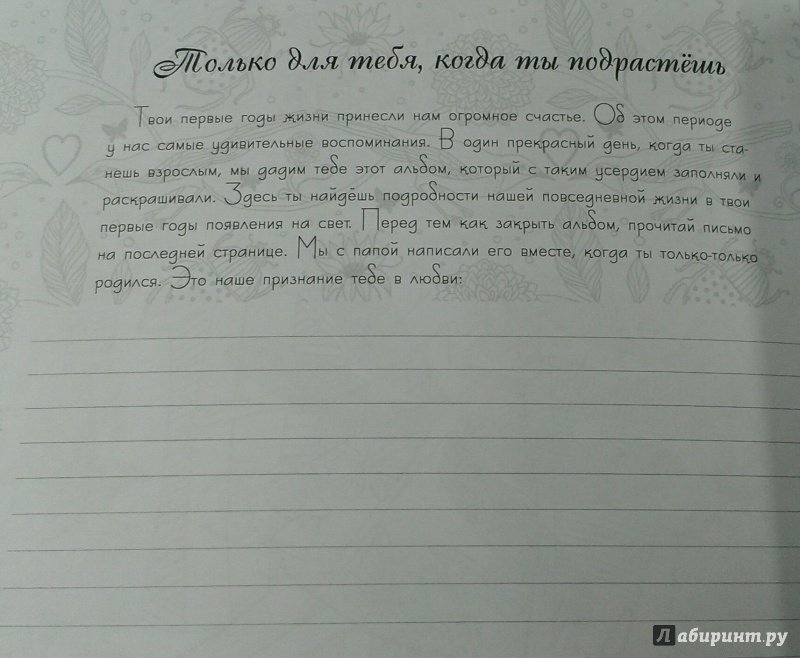 Только для тебя, когда ты подрастёшь
Твои первые годы жизни принесли нам огромное счастье. Об этом периоде
у нас самые удивительные воспоминания. В один прекрасный день, когда ты ста-
нешь взрослым, мы дадим тебе этот альбом, который с таким усердием заполняли и
раскрашивали. Здесь ты найдёшь подробности нашей повседневной жизни в твои
первые годы появления на свет. Перед тем как закрыть альбом, прочитай письмо
на последней странице. Мы с папой написали его вместе, когда ты только-только
родился. Это наше признание тебе в любви:
Лабиринт.ру